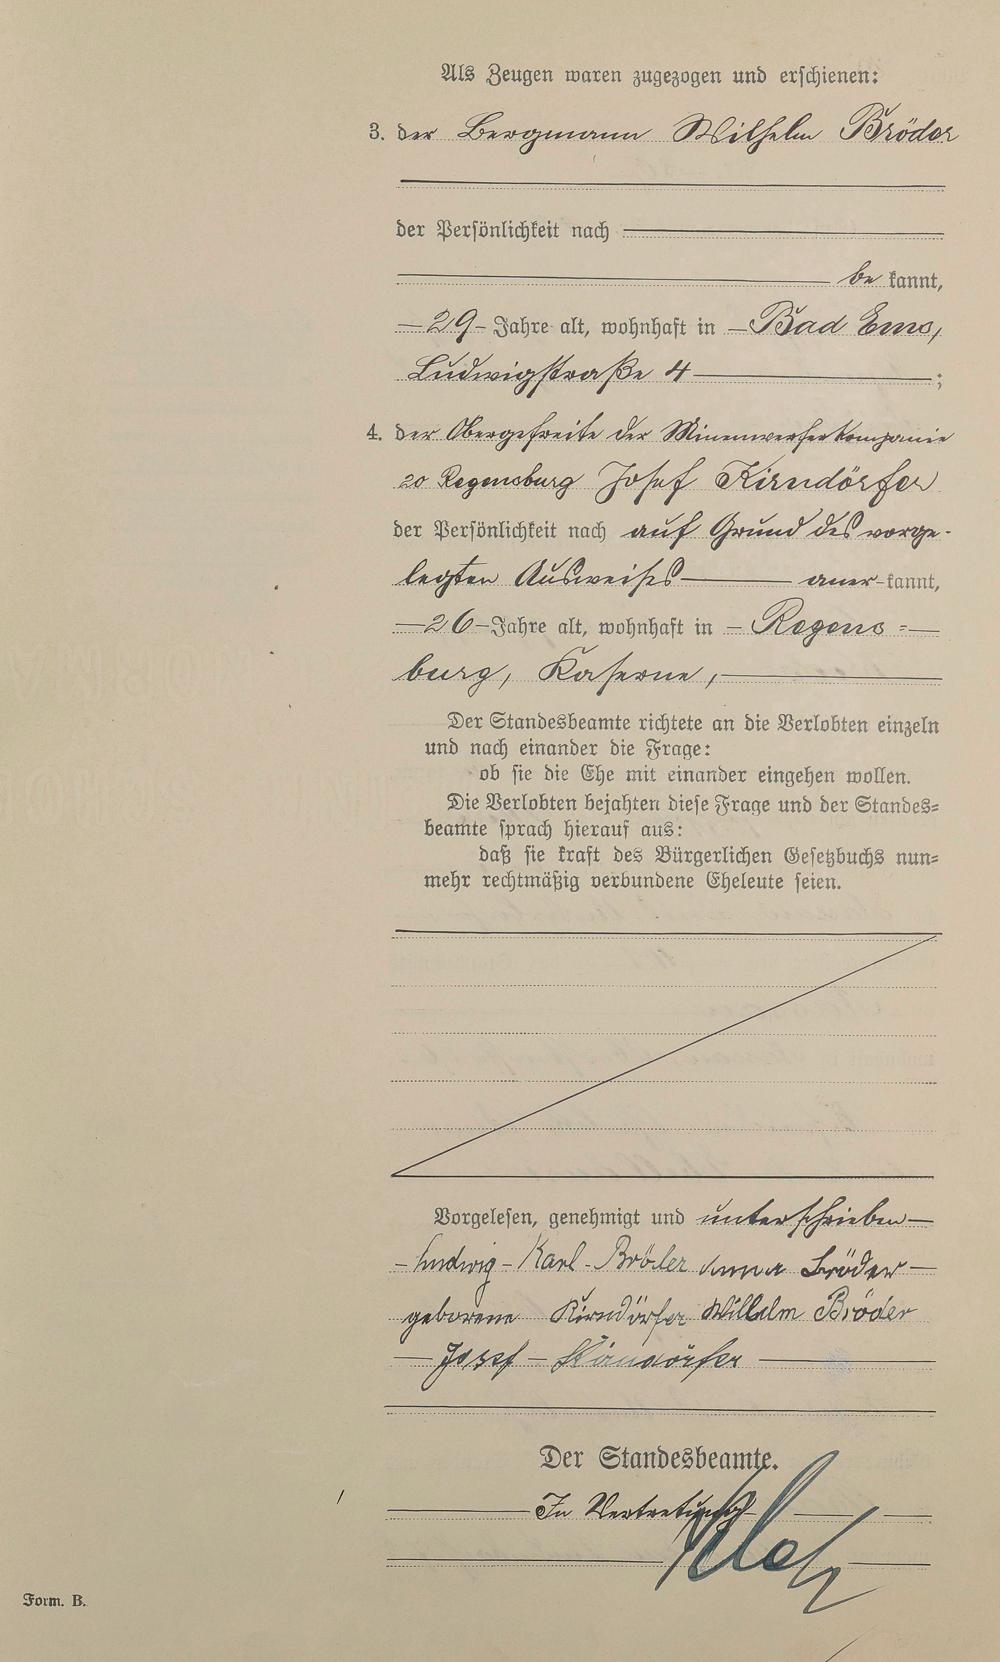 Als Zeugen waren zugezogen und erschienen:
3. der Bergmann Wilhelm Bröder
der Persönlichkeit nach
be kannt,
29 Jahre alt, wohnhaft in Bad Ems,
Ludwigstraße 4 ;
4. der Obergefreite der Minenwerferkompanie
20 Regensburg Josef Kirndörfer
der Persönlichkeit nach auf Grund des vorge-
legten Ausweises aner-kannt,
26 Jahre alt, wohnhaft in Regens=
burg, Kaserne,
Der Standesbeamte richtete an die Verlobten einzeln
und nach einander die Frage:
ob sie die Ehe mit einander eingehen wollen.
Die Verlobten bejahten diese Frage und der Standes=
beamte sprach hierauf aus:
daß sie kraft des Bürgerlichen Gesetzbuchs nun=
mehr rechtmäßig verbundene Eheleute seien.
Vorgelesen, genehmigt und unterschrieben
Ludwig - Karl - Bröder Anna Bröder
geborene Kirndörfer Wilhelm Bröder
Josef - Kirndörfer
Der Standesbeamte.
In Vertretung
Form. B.